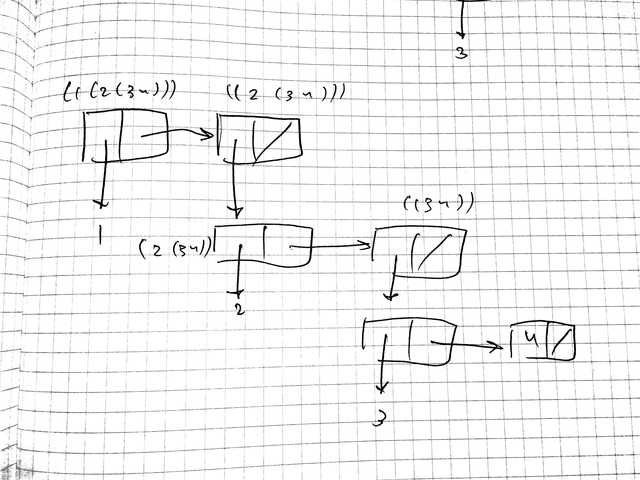 3
((1 (2 (3 4))) ((2 (3 4)))
1
((3 4))
(2 (3 4))
2
4
3